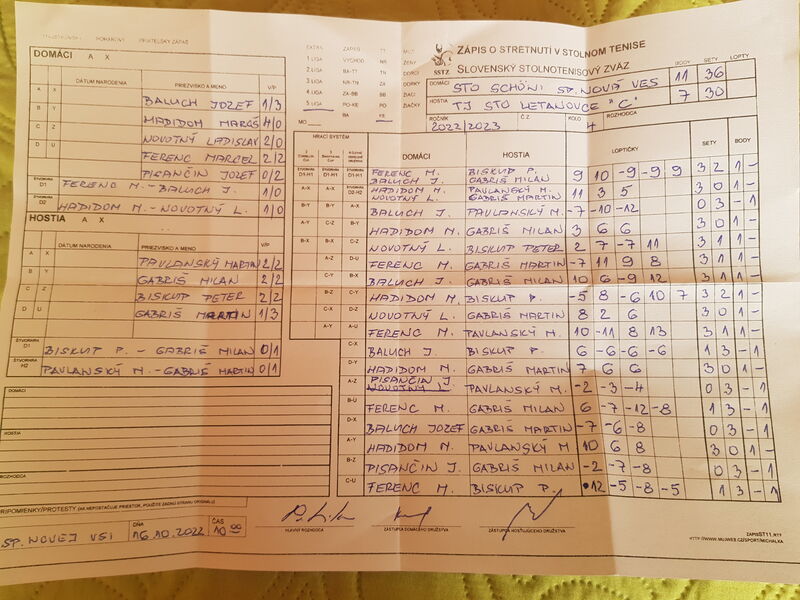 MAJSTROVSKÝ POHÁROVÝ PRIATEĽSKÝ ZÁPAS
DOMÁCI A X
DÁTUM NARODENIA PRIEZVISKO A MENO V/P
A X BALUCH JOZEF 1/3
B Y HADIDOM MAREŠ 4/0
C Z NOVOTNÝ LADISLAV 2/0
D U FERENC MARCEL 2/2
PISANČIN JOZEF 0/2
ŠTVORHRA D1 FERENC M. - BALUCH J. 1/0
ŠTVORHRA D2 HADIDOM M. - NOVOTNÝ L. 1/0
HOSTIA A X
DÁTUM NARODENIA PRIEZVISKO A MENO V/P
A X PAVLANSKÝ MARTIN 2/2
B Y GABRIŠ MILAN 2/2
C Z BISKUP PETER 2/2
D U GABRIŠ MARTIN 1/3
ŠTVORHRA D1 BISKUP P. - GABRIŠ MILAN 0/1
ŠTVORHRA H2 PAVLANSKÝ M. - GABRIŠ MARTIN 0/1
DOMÁCI
HOSTIA
ROZHODCA
PRIPOMIENKY/PROTESTY (AK NEPOSTAČUJE PRIESTOR, POUŽITE ZADNÚ STRANU ORIGINÁLU)
SP. NOVEJ VSI
DŇA 16.10.2022
ČAS 10 00
HLAVNÝ ROZHODCA
ZÁSTUPCA DOMÁCEHO DRUŽSTVA
ZÁSTUPCA HOSŤUJÚCEHO DRUŽSTVA
EXTRA ZÁPAD TT MUŽI
1 LIGA VÝCHOD NR ŽENY
2 LIGA BA-TT TN DORCI
3 LIGA NR-TN ZA DORKY
4 LIGA ZA-BB BB ŽIACI
5 LIGA PO-KE PO ŽIAČKY
MO BA KE
SSTZ
ZÁPIS O STRETNUTÍ V STOLNOM TENISE
SLOVENSKÝ STOLNOTENISOVÝ ZVÄZ
BODY SETY LOPTY
DOMÁCI STO SCHÖNI SP. NOVÁ VES 11 36
HOSTIA TJ STO LETANOVCE "C" 7 30
ROČNÍK 2022/2023 Č.Z. KOLO 4 ROZHODCA
HRACÍ SYSTÉM DOMÁCI HOSTIA LOPTIČKY SETY BODY
FERENC M. BALUCH J. BISKUP P. GABRIŠ MILAN 9 10 -9 -9 9 3 2 1 -
HADIDOM M. NOVOTNÝ L. PAVLANSKÝ M. GABRIŠ MARTIN 11 3 5 3 0 1 -
BALUCH J. PAVLANSKÝ M. -7 -10 -12 0 3 - 1
HADIDOM M. GABRIŠ MILAN 3 6 6 3 0 1 -
NOVOTNÝ L. BISKUP PETER 2 7 -7 11 3 1 1 -
FERENC M. GABRIŠ MARTIN -7 11 9 8 3 1 1 -
BALUCH J. GABRIŠ MILAN 10 6 -9 12 3 1 1 -
HADIDOM M. BISKUP P. -5 8 -6 10 7 3 2 1 -
NOVOTNÝ L. GABRIŠ MARTIN 8 2 6 3 0 1 -
FERENC M. PAVLANSKÝ M. 10 -11 8 13 3 1 1 -
BALUCH J. BISKUP P. 6 -6 -6 -6 1 3 - 1
HADIDOM M. GABRIŠ MARTIN 7 6 6 3 0 1 -
PISANČIN J. NOVOTNÝ L. PAVLANSKÝ M. -2 -3 -4 0 3 - 1
FERENC M. GABRIŠ MILAN 6 -7 -12 -8 1 3 - 1
BALUCH JOZEF GABRIŠ MARTIN -7 -6 -8 0 3 - 1
HADIDOM M. PAVLANSKÝ M 10 6 8 3 0 1 -
PISANČIN J. GABRIŠ MILAN -2 -7 -8 0 3 - 1
FERENC M. BISKUP P. 12 -5 -8 -5 1 3 - 1
ZAPISST11.RTF
HTTP://WWW.MUJWEB.CZ/SPORT/MICHALKA